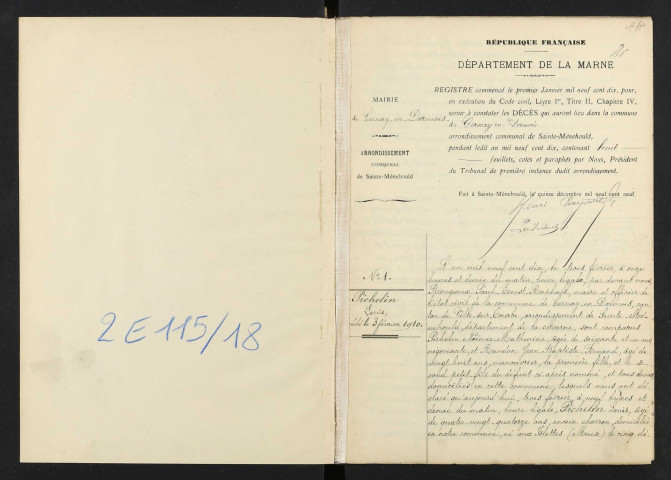 2 E 115/18
RÉPUBLIQUE FRANÇAISE
DÉPARTEMENT DE LA MARNE
MAIRIE
de Cernay-en-Dormois
ARRONDISSEMENT
COMMUNAL
de Sainte-Ménehould
REGISTRE commencé le premier Janvier mil neuf cent dix, pour,
en exécution du Code civil, Livre Ier, Titre II, Chapitre IV,
servir à constater les DÉCÈS qui auront lieu dans la commune
de Cernay-en-Dormois
arrondissement communal de Sainte-Ménehould,
pendant ledit an mil neuf cent dix, contenant huit
feuillets, cotés et paraphés par Nous, Président
du Tribunal de première instance dudit arrondissement.
Fait à Sainte-Ménehould, le quinze décembre mil neuf cent neuf.
Henri
Président
N° 1.
Pichelin
Louis,
décédé le 3 février 1910.
L'an mil neuf cent dix, le trois février, à onze
heures et demie du matin, heure légale, par devant nous
Paul Ernest Raphaël, maire et officier de
l'état civil de la commune de Cernay-en-Dormois, can-
ton de Ville-sur-Tourbe, arrondissement de Sainte-Mé-
nehould, département de la Marne, sont comparus
Pichelin Louise Catherine, âgée de soixante et un ans
négociante, et Jean Baptiste Fernand, âgé de
vingt huit ans, manouvrier, la première fille et le se-
cond petit fils du défunt ci après nommé, et tous deux
domiciliés en cette commune, lesquels nous ont dé-
claré qu'aujourd'hui, trois février, à neuf heures et
demie du matin, heure légale, Pichelin Louis, âgé
de quatre-vingt-quatorze ans, ancien charron, domicilié
en notre commune, né aux Islettes (Meuse) le cinq dé-